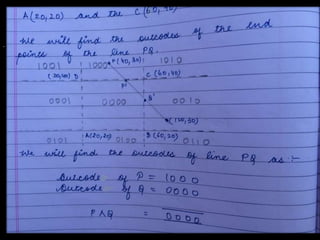 A(20,20) and the C(60,40)
We will find the outcodes of the end
points of the line PQ.
1001 1000 P(40,50) 1010
(20,40) D C (60,40)
P'
0001 0000 Q' 0010
Q(70,30)
0101 A(20,20) 0100 B(60,20) 0110
We will find the outcodes of line PQ as :-
Outcode of P = 1000
Outcode of Q = 0000
P ∧ Q = 0000